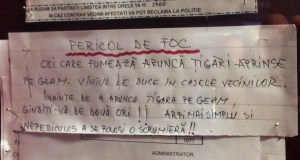 VA RUGAM SA PASTRATI LINISTEA INTRE ORELE 14-16
IN CAZ CONTRAR CEI AFECTATI VA POT RECLAMA LA POLITIE
PERICOL DE FOC
CEI CARE FUMEAZĂ ARUNCĂ ȚIGĂRI APRINSE
PE GEAM. VÎNTUL LE DUCE ÎN CASELE VECINILOR.
ÎNAINTE DE A ARUNCA ȚIGARA PE GEAM,
GÎNDIȚI-VĂ DE DOUĂ ORI !! AR FI MAI SIMPLU ȘI
NEPERICULOS A SE FOLOSI O SCRUMIERĂ !!
ADMINISTRATOR